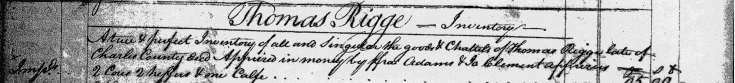 Thomas Rigge — Inventory
A true & perfect Inventory of all and Singular the goods & Chattels of Thomas Rigge late of
Charles County Apprized in money by Adams & Clement Apprizers
Impr.s 2 Cows 2 heifers & one Calfe